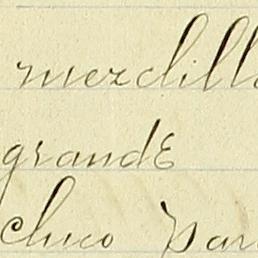 mezclilla
grande
chico par